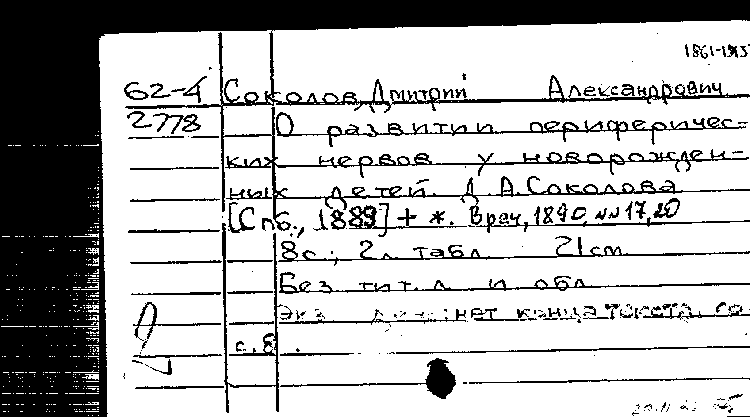 62-4 Соколов, Дмитрий Александрович
2778 О развитии перифериче­с-
ких нервов у новорожден-
ных детей. Д. А. Соколова
[Спб., 1889] + *. Врач, 1890, NN 17, 20
8с.; 2л. табл. 21см.
Без тит. л. и обл.
Экз. нет конца текста, со
с. 8.
2